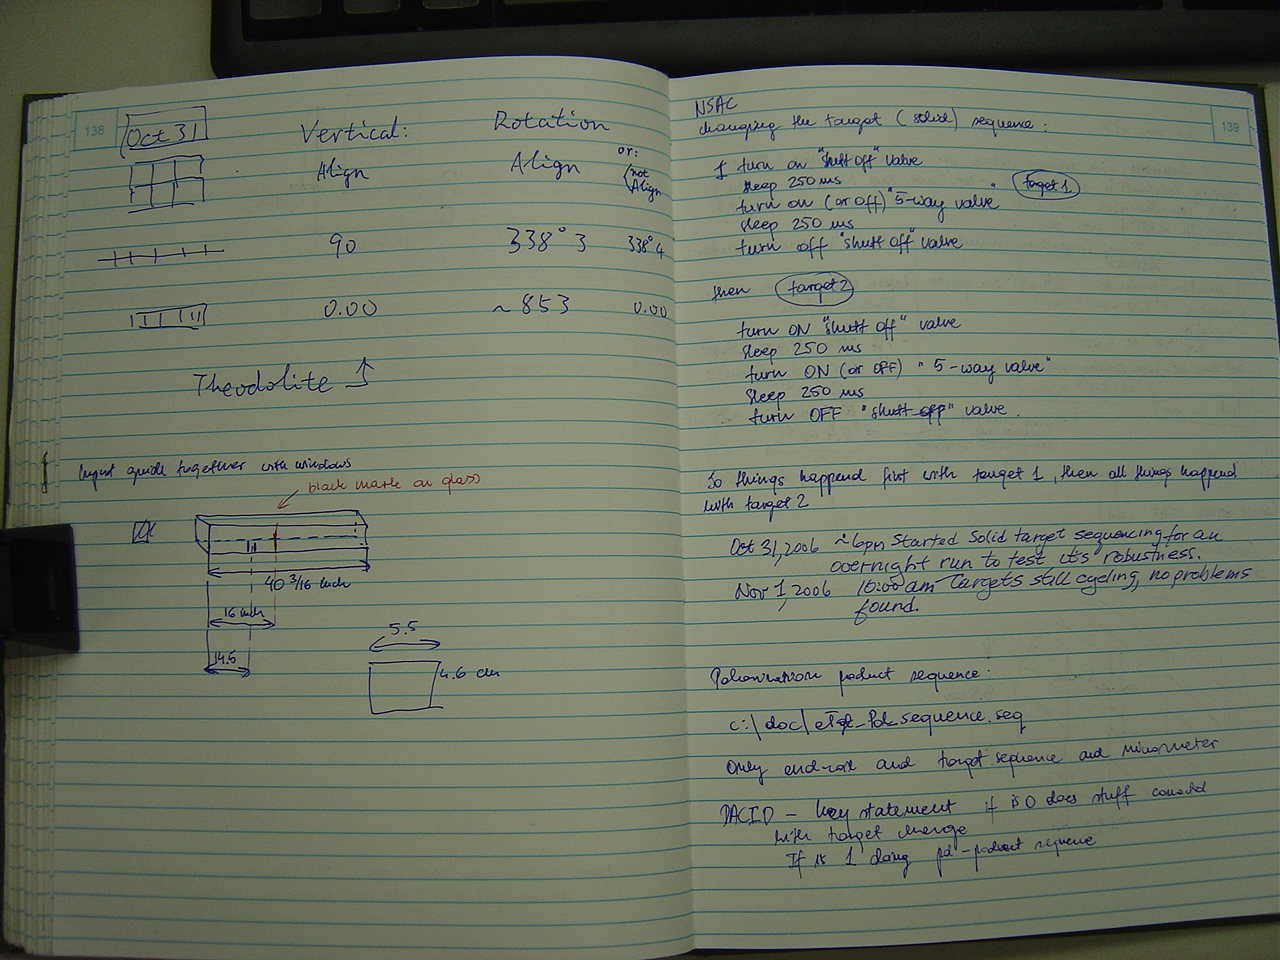 138
Oct 31
Vertical:
Rotation
Align
Align
or:
(not
Align
90
338° 3
338° 4
0.00
~853
0.00
Theodolite
Input guide together with windows
black mark on glass
40 3/16 inch
16 inch
14.5
5.5
4.6 cm
139
NSAC
changing the target (solid) sequence:
1 turn on "shutt off" valve
sleep 250 ms
turn on (or off) "5-way valve"
target 1
sleep 250 ms
turn off "shutt off" valve
then target 2
turn ON "shutt off" valve
sleep 250 ms
turn ON (or OFF) "5-way valve"
sleep 250 ms
turn OFF "shutt-off" valve.
So things happend first with target 1, then all things happend
with target 2
Oct 31, 2006 ~6pm Started Solid target sequencing for an
overnight run to test its robustness.
Nov 1, 2006 10:00am Targets still cycling, no problems
found.
product sequence:
c:\doc\
Only and target sequence and
key statement if is 0 does stuff
with target change
If is 1 doing pol-product sequence